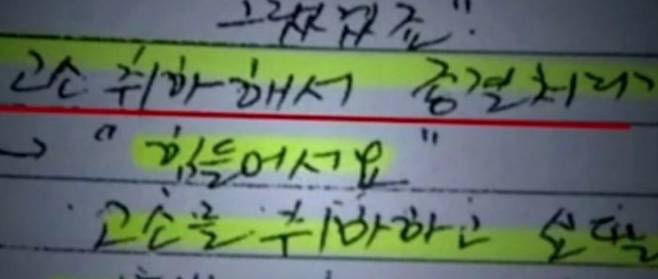 그랬겠죠".
고소 취하해서 종결처리
→ "힘들어서요"
고소를 취하하고